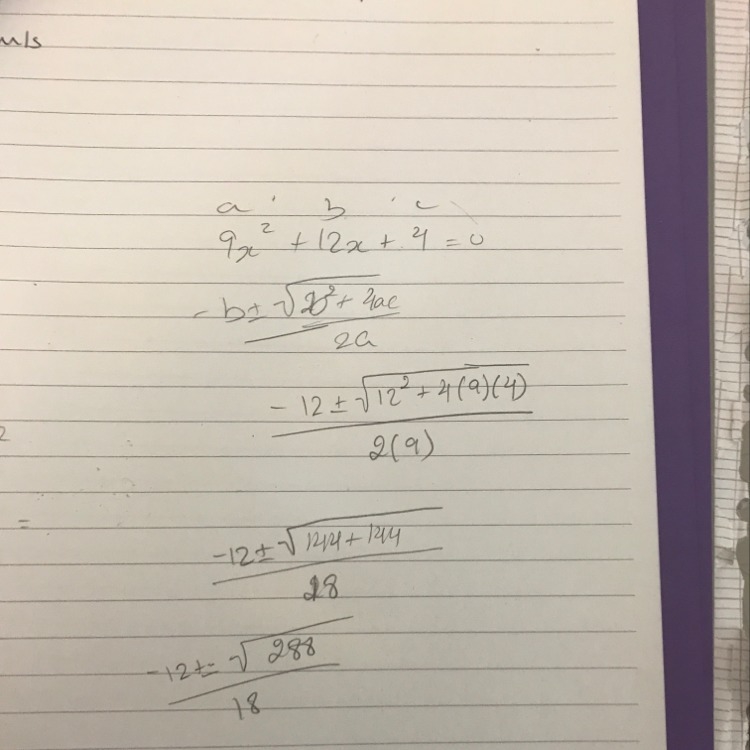 a b c
9x² + 12x + 4 = 0
-b ± √b² + 4ac
2a
-12 ± √12² + 4(9)(4)
2(9)
-12 ± √144 + 144
18
-12 ± √288
18
2
=